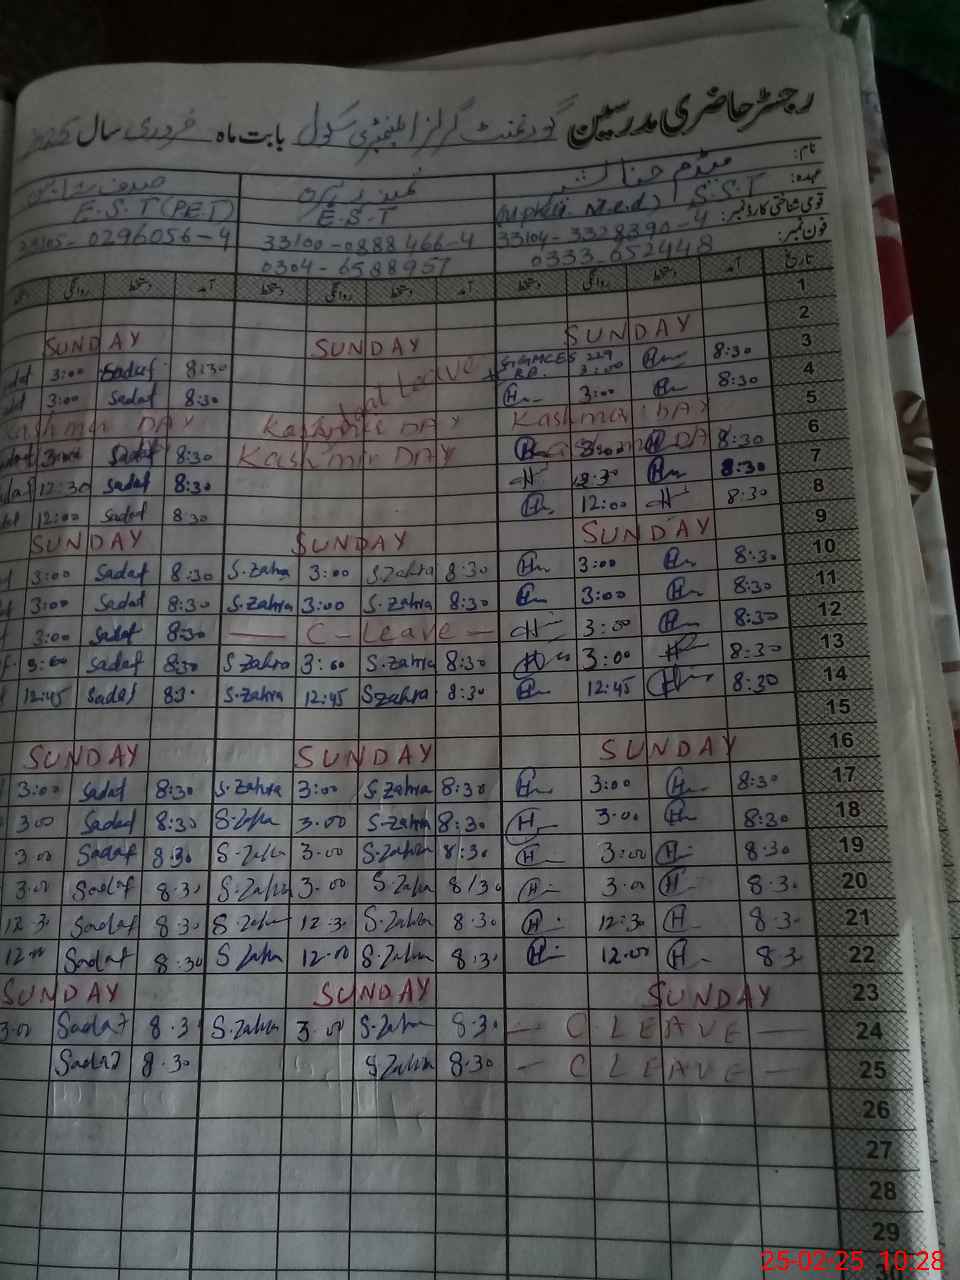 رجسٹر حاضری مدرسین گورنمنٹ گرلز ایلیمنٹری سکول بابت ماہ فروری سال 2025
نام: میڈم حنا
عہدہ: S.S.T M.ed) E.S.T E.S.T (P.E.T)
قومی شناختی کارڈ نمبر: 33104-3328390-4 33100-0888466-4 33105-0296056-4
فون نمبر: 0333-652448 0304-6588957
تاریخ آمد دستخط روانگی دستخط آمد دستخط روانگی دستخط آمد دستخط روانگی
1
2 SUNDAY SUNDAY SUNDAY
3 8:30 H 3:00 Leave 8:30 Sadaf 3:00
4 8:30 H 3:00 H 8:30 Sadaf 3:00
5 Kashmir DAY Kashmir DAY Kashmir DAY
6 8:30 H H Kashmir DAY 8:30 Sadaf 3:00
7 8:30 H H 8:30 Sadaf 12:30
8 8:30 H 12:00 H 8:30 Sadaf 12:00
9 SUNDAY SUNDAY SUNDAY
10 8:30 H 3:00 H 8:30 S.Zahra 3:00 S.Zahra 8:30 Sadaf 3:00
11 8:30 H 3:00 H 8:30 S.Zahra 3:00 S.Zahra 8:30 Sadaf 3:00
12 8:30 H 3:00 H — C-Leave — 8:30 Sadaf 3:00
13 8:30 H 3:00 H 8:30 S.Zahra 3:00 S.Zahra 8:30 Sadaf 3:00
14 8:30 H 12:45 H 8:30 S.Zahra 12:45 S.Zahra 8:30 Sadaf 12:45
15
16 SUNDAY SUNDAY SUNDAY
17 8:30 H 3:00 H 8:30 S.Zahra 3:00 S.Zahra 8:30 Sadaf 3:00
18 8:30 H 3:00 H 8:30 S.Zahra 3:00 S.Zahra 8:30 Sadaf 3:00
19 8:30 H 3:00 H 8:30 S.Zahra 3:00 S.Zahra 8:30 Sadaf 3:00
20 8:30 H 3:00 H 8:30 S.Zahra 3:00 S.Zahra 8:30 Sadaf 3:00
21 8:30 H 12:30 H 8:30 S.Zahra 12:30 S.Zahra 8:30 Sadaf 12:30
22 8:30 H 12:00 H 8:30 S.Zahra 12:00 S.Zahra 8:30 Sadaf 12:00
23 SUNDAY SUNDAY SUNDAY
24 — C LEAVE — 8:30 S.Zahra 3:00 S.Zahra 8:30 Sadaf 3:00
25 — C LEAVE — 8:30 S.Zahra 8:30 Sadaf
26
27
28
29
25-02-25 10:28